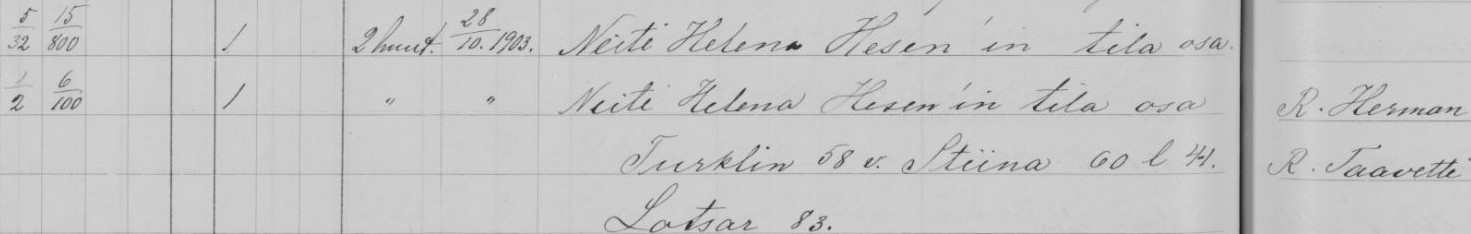 5/32 15/800 1 2 huut. 28/10. 1903. Neiti Helena Hesen'in tila osa.
1/2 6/100 1 " " Neiti Helena Hesen'in tila osa R. Herman
Turklin 58 v. Stiina 60 l 41. R. Taavetti
Lotsar 83.